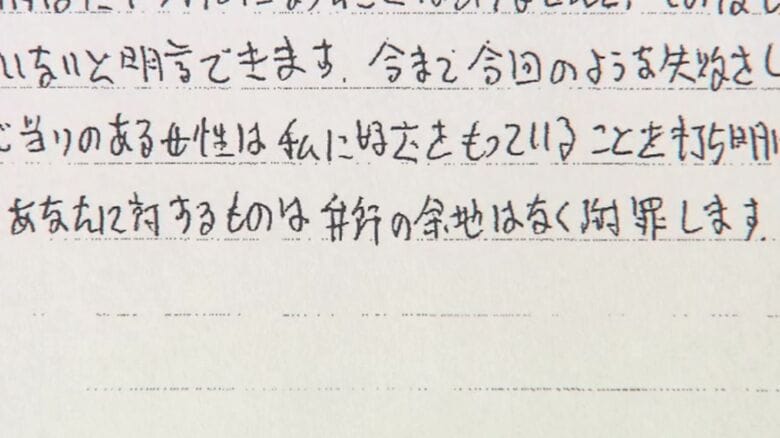 いないと明言できます. 今まで今回のような失敗をし
心当りのある女性は私に好意をもっていることを打ち明け
あなたに対するものは弁行の余地はなく謝罪します.